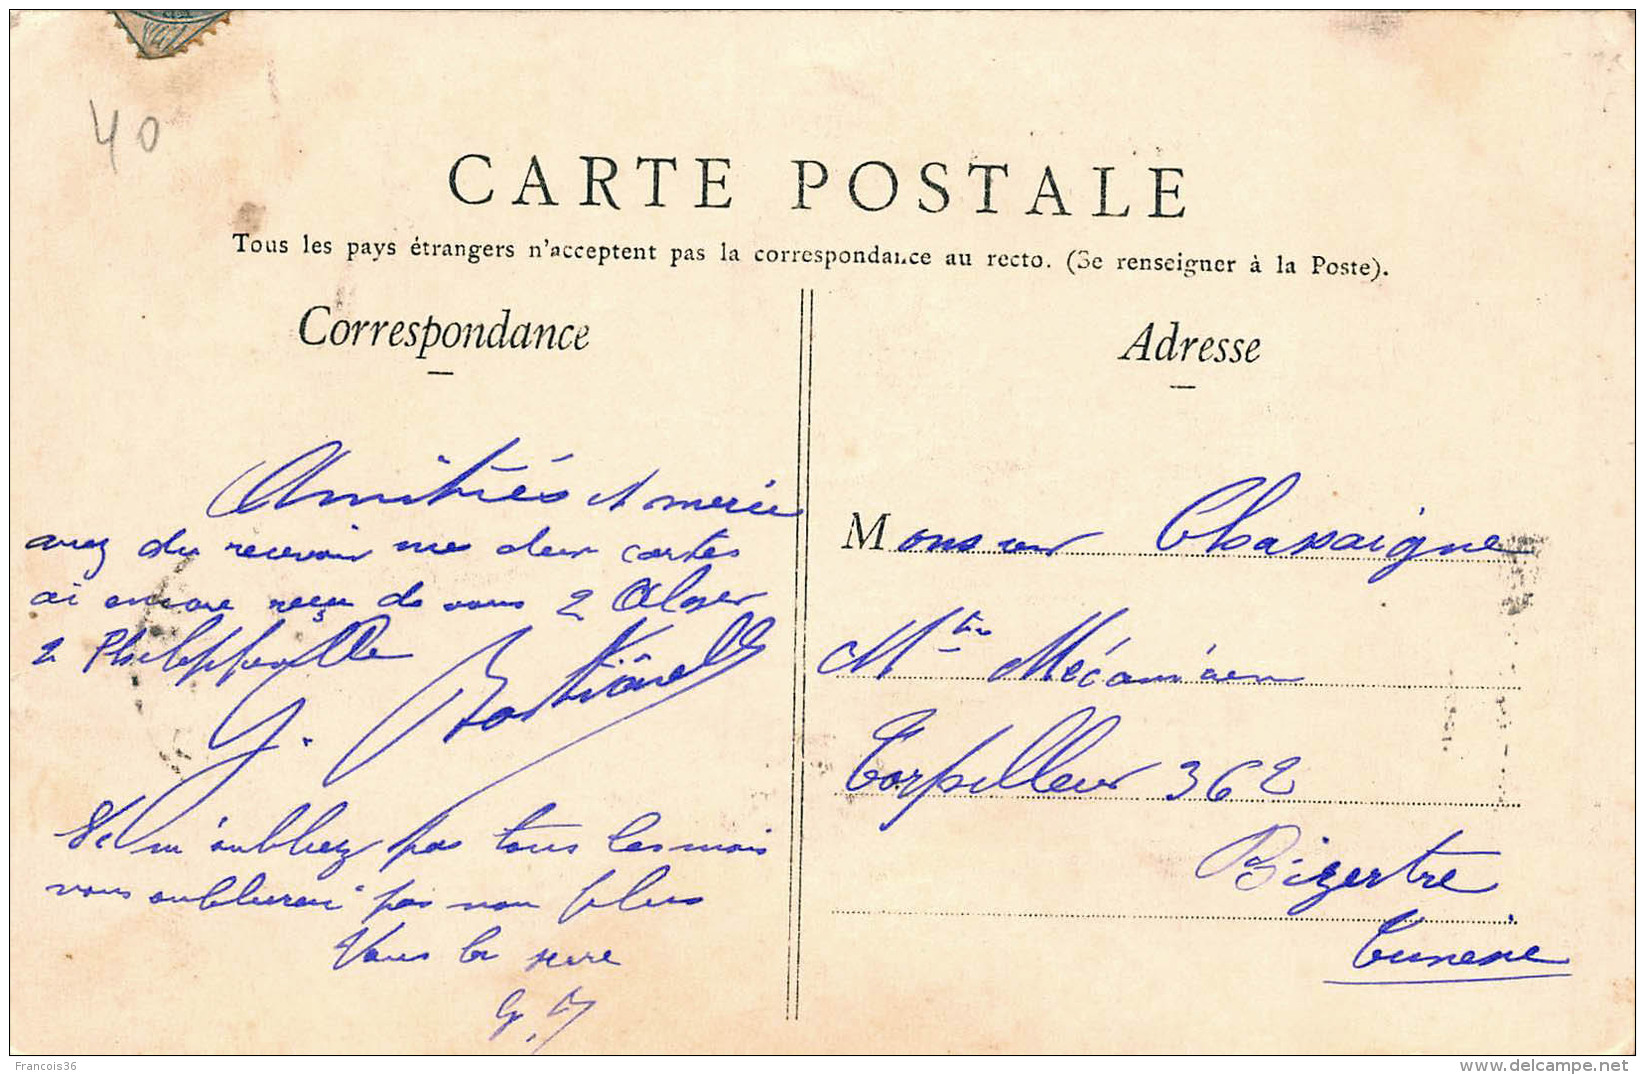 40
CARTE POSTALE
Tous les pays étrangers n'acceptent pas la correspondance au recto. (Se renseigner à la Poste).
Correspondance
Amitiés et merci
avez du recevoir mes deux cartes
ai encore reçu de vous 2 Alger
2 Philippeville
G.
Ne m'oubliez pas tous les mois
vous oublierai pas non plus
Vous la serre
G.
Adresse
Monsieur Chassaigne
Mtre Mécanicien
Torpilleur 362
Bizertre
Tunesie
Francois36
www.delcampe.net